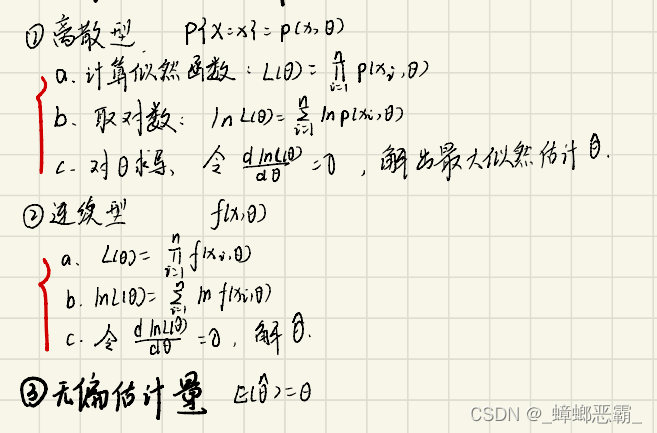 ① 离散型 P{X=x}=p(x,θ)
a. 计算似然函数：L(θ)=∏_{i=1}^{n} p(x_i,θ)
b. 取对数：lnL(θ)=∑_{i=1}^{n} ln p(x_i,θ)
c. 对θ求导，令 dlnL(θ)/dθ =0，解出最大似然估计 θ̂.
② 连续型 f(x,θ)
a. L(θ)=∏_{i=1}^{n} f(x_i,θ)
b. lnL(θ)=∑_{i=1}^{n} ln f(x_i,θ)
c. 令 dlnL(θ)/dθ =0，解 θ̂.
③ 无偏估计量 E(θ̂)=θ
CSDN @_蟑螂恶霸_